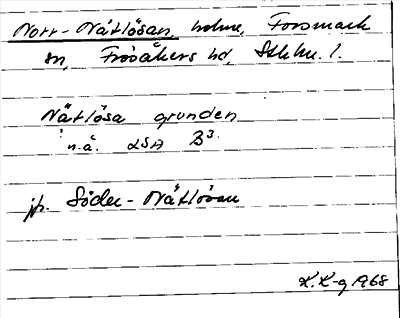 Norr-Nätlösan, holme, Forsmark
sn, Frösåkers hd, Sthlm. l.
Nätlösa grunden
n.ä. LSA B3.
jfr. Söder-Nätlösan
K.K-g 1968